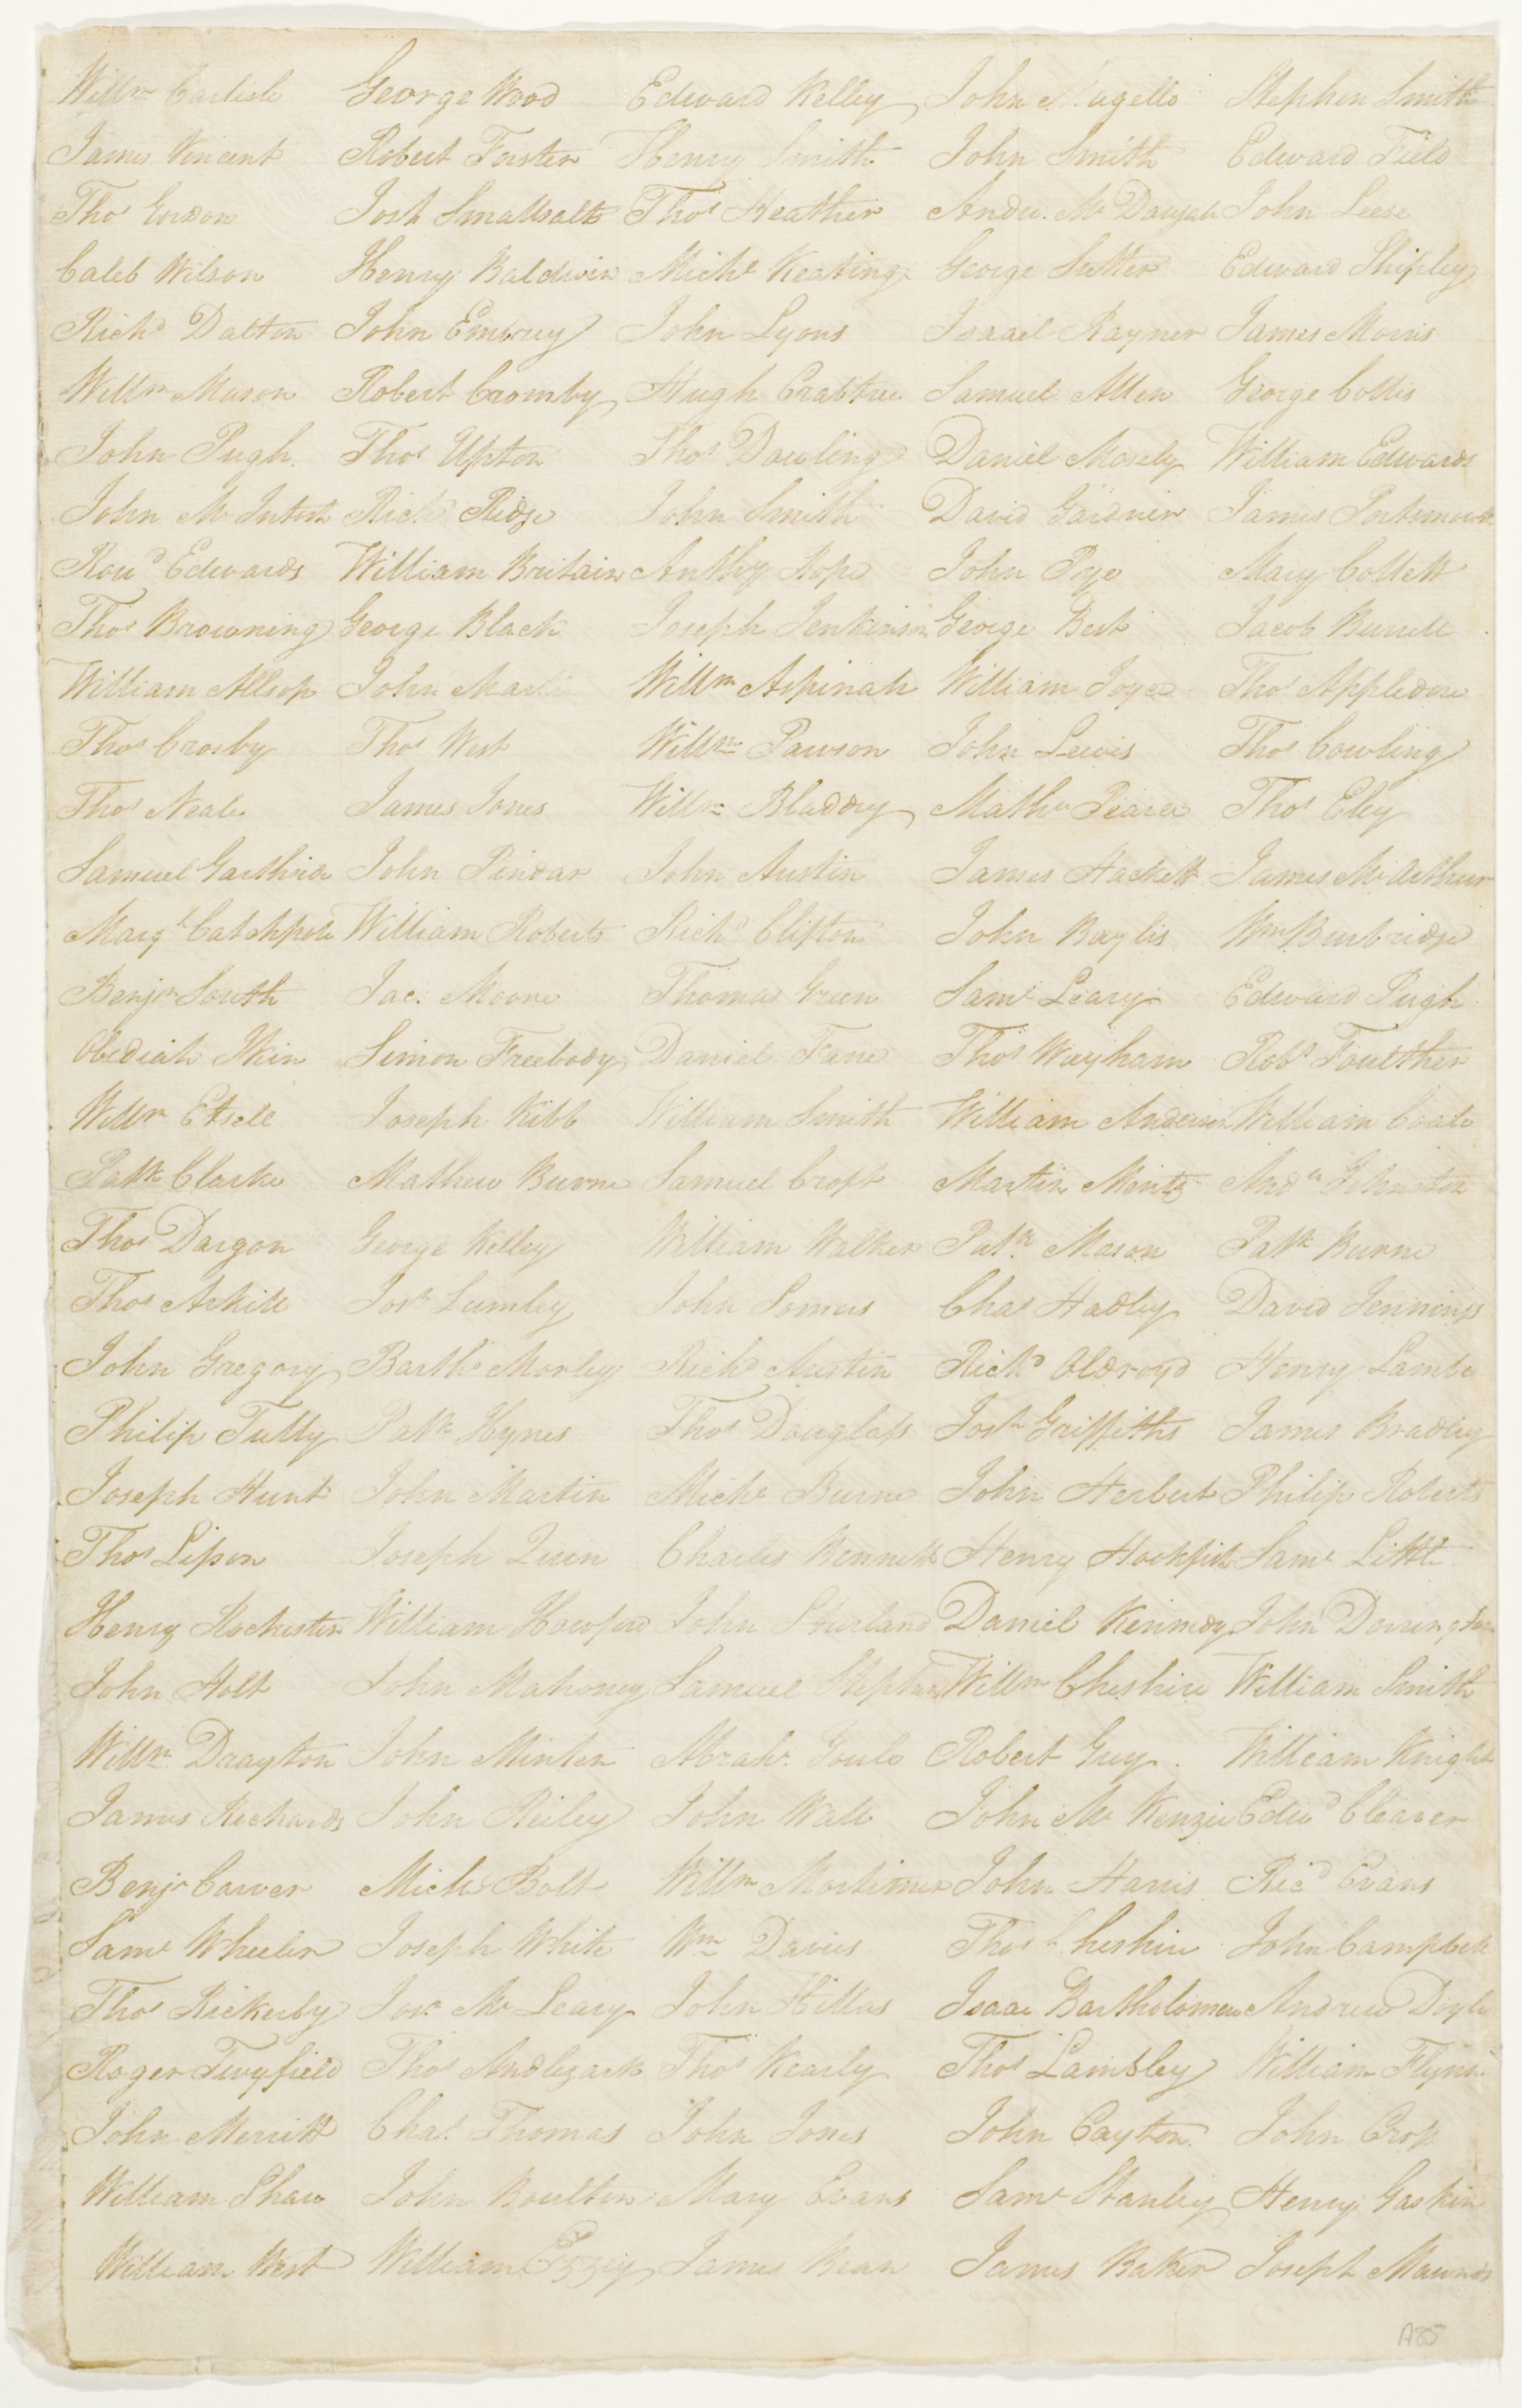 Willm Carlisle George Wood Edward Kelley John Nagello Stephen Smith
James Vincent Robert Forster Henry Smith John Smith Edward Field
Thos Gordon Josh Smallsalts Thos Heather Andw. Mc Dougal John Leese
Caleb Wilson Henry Baldwin Michl Keating George Sutter Edward Shipley
Richd Dalton John Embrey John Lyons Israel Rayner James Morris
Willm Mason Robert Cromby Hugh Crabtree Samuel Allen George Collis
John Pugh Thos Upton Thos Dowling Daniel Mosely William Edwards
John Mc Intosh Richd Ridge John Smith David Gardner James Portsmouth
Rowd Edwards William Britain Anthy Rope John Pye Mary Collett
Thos Browning George Black Joseph Jenkinson George Best Jacob Burrell
William Allsop John Martin Willm Aspinah William Joyce Thos Appledore
Thos Crosby Thos West Willm Pawson John Lewis Thos Cowling
Thos Neale James Jones Willm Bladdey Mathw Pearce Thos Eley
Samuel Garthrich John Pindar John Austin James Hackett James Mc Arthur
Margt Catchpole William Roberts Richd Clifton John Baylis Wm Burbridge
Benjn South Jac. Moore Thomas Green Saml Leary Edward Pugh
Obediah Ikin Simon Freebody Daniel Fane Thos Wayham Robt Foulther
Willm Etsell Joseph Kibb William Smith William Anderson William Coale
Patk Clarke Mathew Burne Samuel Croft Martin Mentz Andw Johnston
Thos Dargon George Kelley William Walker Patk. Mason Patk Burne
Thos Arkill Josh Lumley John Somers Chas Hadley David Jennings
John Gregory Barthw Morley Richd Martin Richd Oldroyd Henry Lamb
Philip Tully Patk Hynes Thos Douglass Josh Griffiths James Bradley
Joseph Hunt John Martin Michl Burne John Herbert Philip Roberts
Thos Lipson Joseph Quen Charles Bennett Henry Hookfish Saml Little
Henry Rochester William Howford John Sturland Daniel Kennedy John Dorrington
John Holt John Mahoney Samuel Stephens Willm Cheshire William Smith
Willm Drayton John Minten Abrahm Goule Robert Guy. William Knight
James Richards John Reiley John Wall John Mc Kenzie Edwd Cleaver
Benjn Carver Michl Bolt Willm Mortimer John Harris Ricd Evans
Saml Wheeler Joseph White Wm Davies Thos Cheshire John Campbell
Thos Rickerby Jos. Mc Leary John Hillas Isaac Bartholomew Andrew Doyle
Roger Twyfield Thos Andlezark Thos Kearly Thos Lambley William Flynn
John Merritt Chas. Thomas John Jones John Cayton John Cross
William Shaw John Boulton Mary Evans Saml Stanley Henry Gaskin
William West William Ezzey James Bean James Baker Joseph Maunds
A85